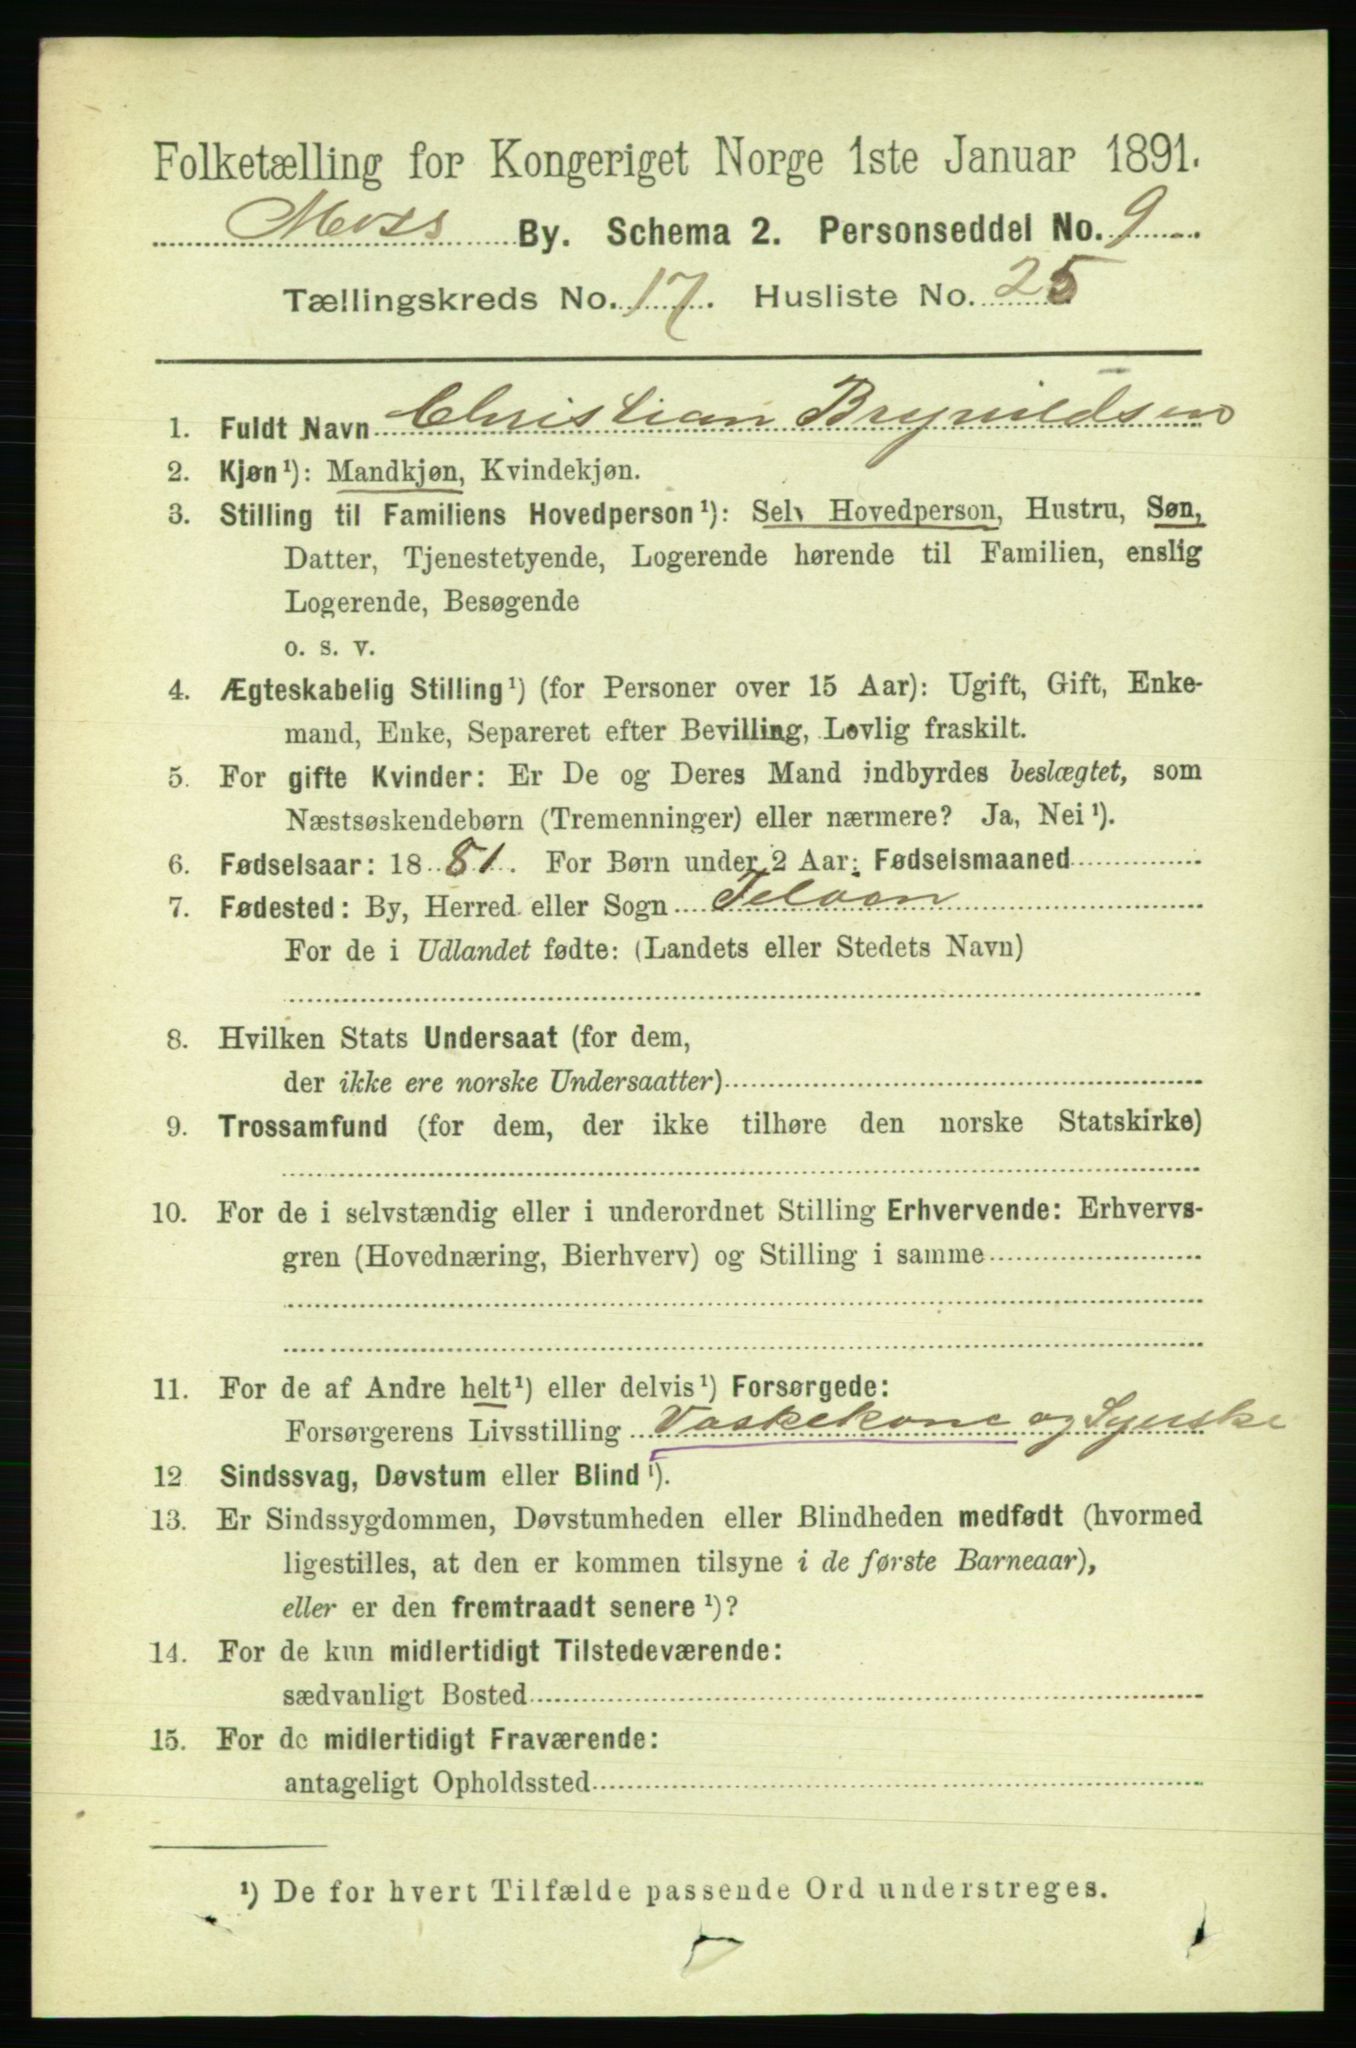 Folketælling for Kongeriget Norge 1ste Januar 1891.
Moss By. Schema 2. Personseddel No. 9
Tællingskreds No. 17. Husliste No. 25
1. Fuldt Navn Christian Brynildsen
2. Kjøn¹): Mandkjøn, Kvindekjøn.
3. Stilling til Familiens Hovedperson¹): Selv Hovedperson, Hustru, Søn,
Datter, Tjenestetyende, Logerende hørende til Familien, enslig
Logerende, Besøgende
o. s. v.
4. Ægteskabelig Stilling¹) (for Personer over 15 Aar): Ugift, Gift, Enke-
mand, Enke, Separeret efter Bevilling, Lovlig fraskilt.
5. For gifte Kvinder: Er De og Deres Mand indbyrdes beslægtet, som
Næstsøskendebørn (Tremenninger) eller nærmere? Ja, Nei¹).
6. Fødselsaar: 1881. For Børn under 2 Aar: Fødselsmaaned
7. Fødested: By, Herred eller Sogn Jeløen
For de i Udlandet fødte: (Landets eller Stedets Navn)
8. Hvilken Stats Undersaat (for dem,
der ikke ere norske Undersaatter)
9. Trossamfund (for dem, der ikke tilhøre den norske Statskirke)
10. For de i selvstændig eller i underordnet Stilling Erhvervende: Erhvervs-
gren (Hovednæring, Bierhverv) og Stilling i samme
11. For de af Andre helt¹) eller delvis¹) Forsørgede:
Forsørgerens Livsstilling Vaskekone og Syerske
12 Sindssvag, Døvstum eller Blind¹).
13. Er Sindssygdommen, Døvstumheden eller Blindheden medfødt (hvormed
ligestilles, at den er kommen tilsyne i de første Barneaar),
eller er den fremtraadt senere¹)?
14. For de kun midlertidigt Tilstedeværende:
sædvanligt Bosted
15. For de midlertidigt Fraværende:
antageligt Opholdssted
¹) De for hvert Tilfælde passende Ord understreges.